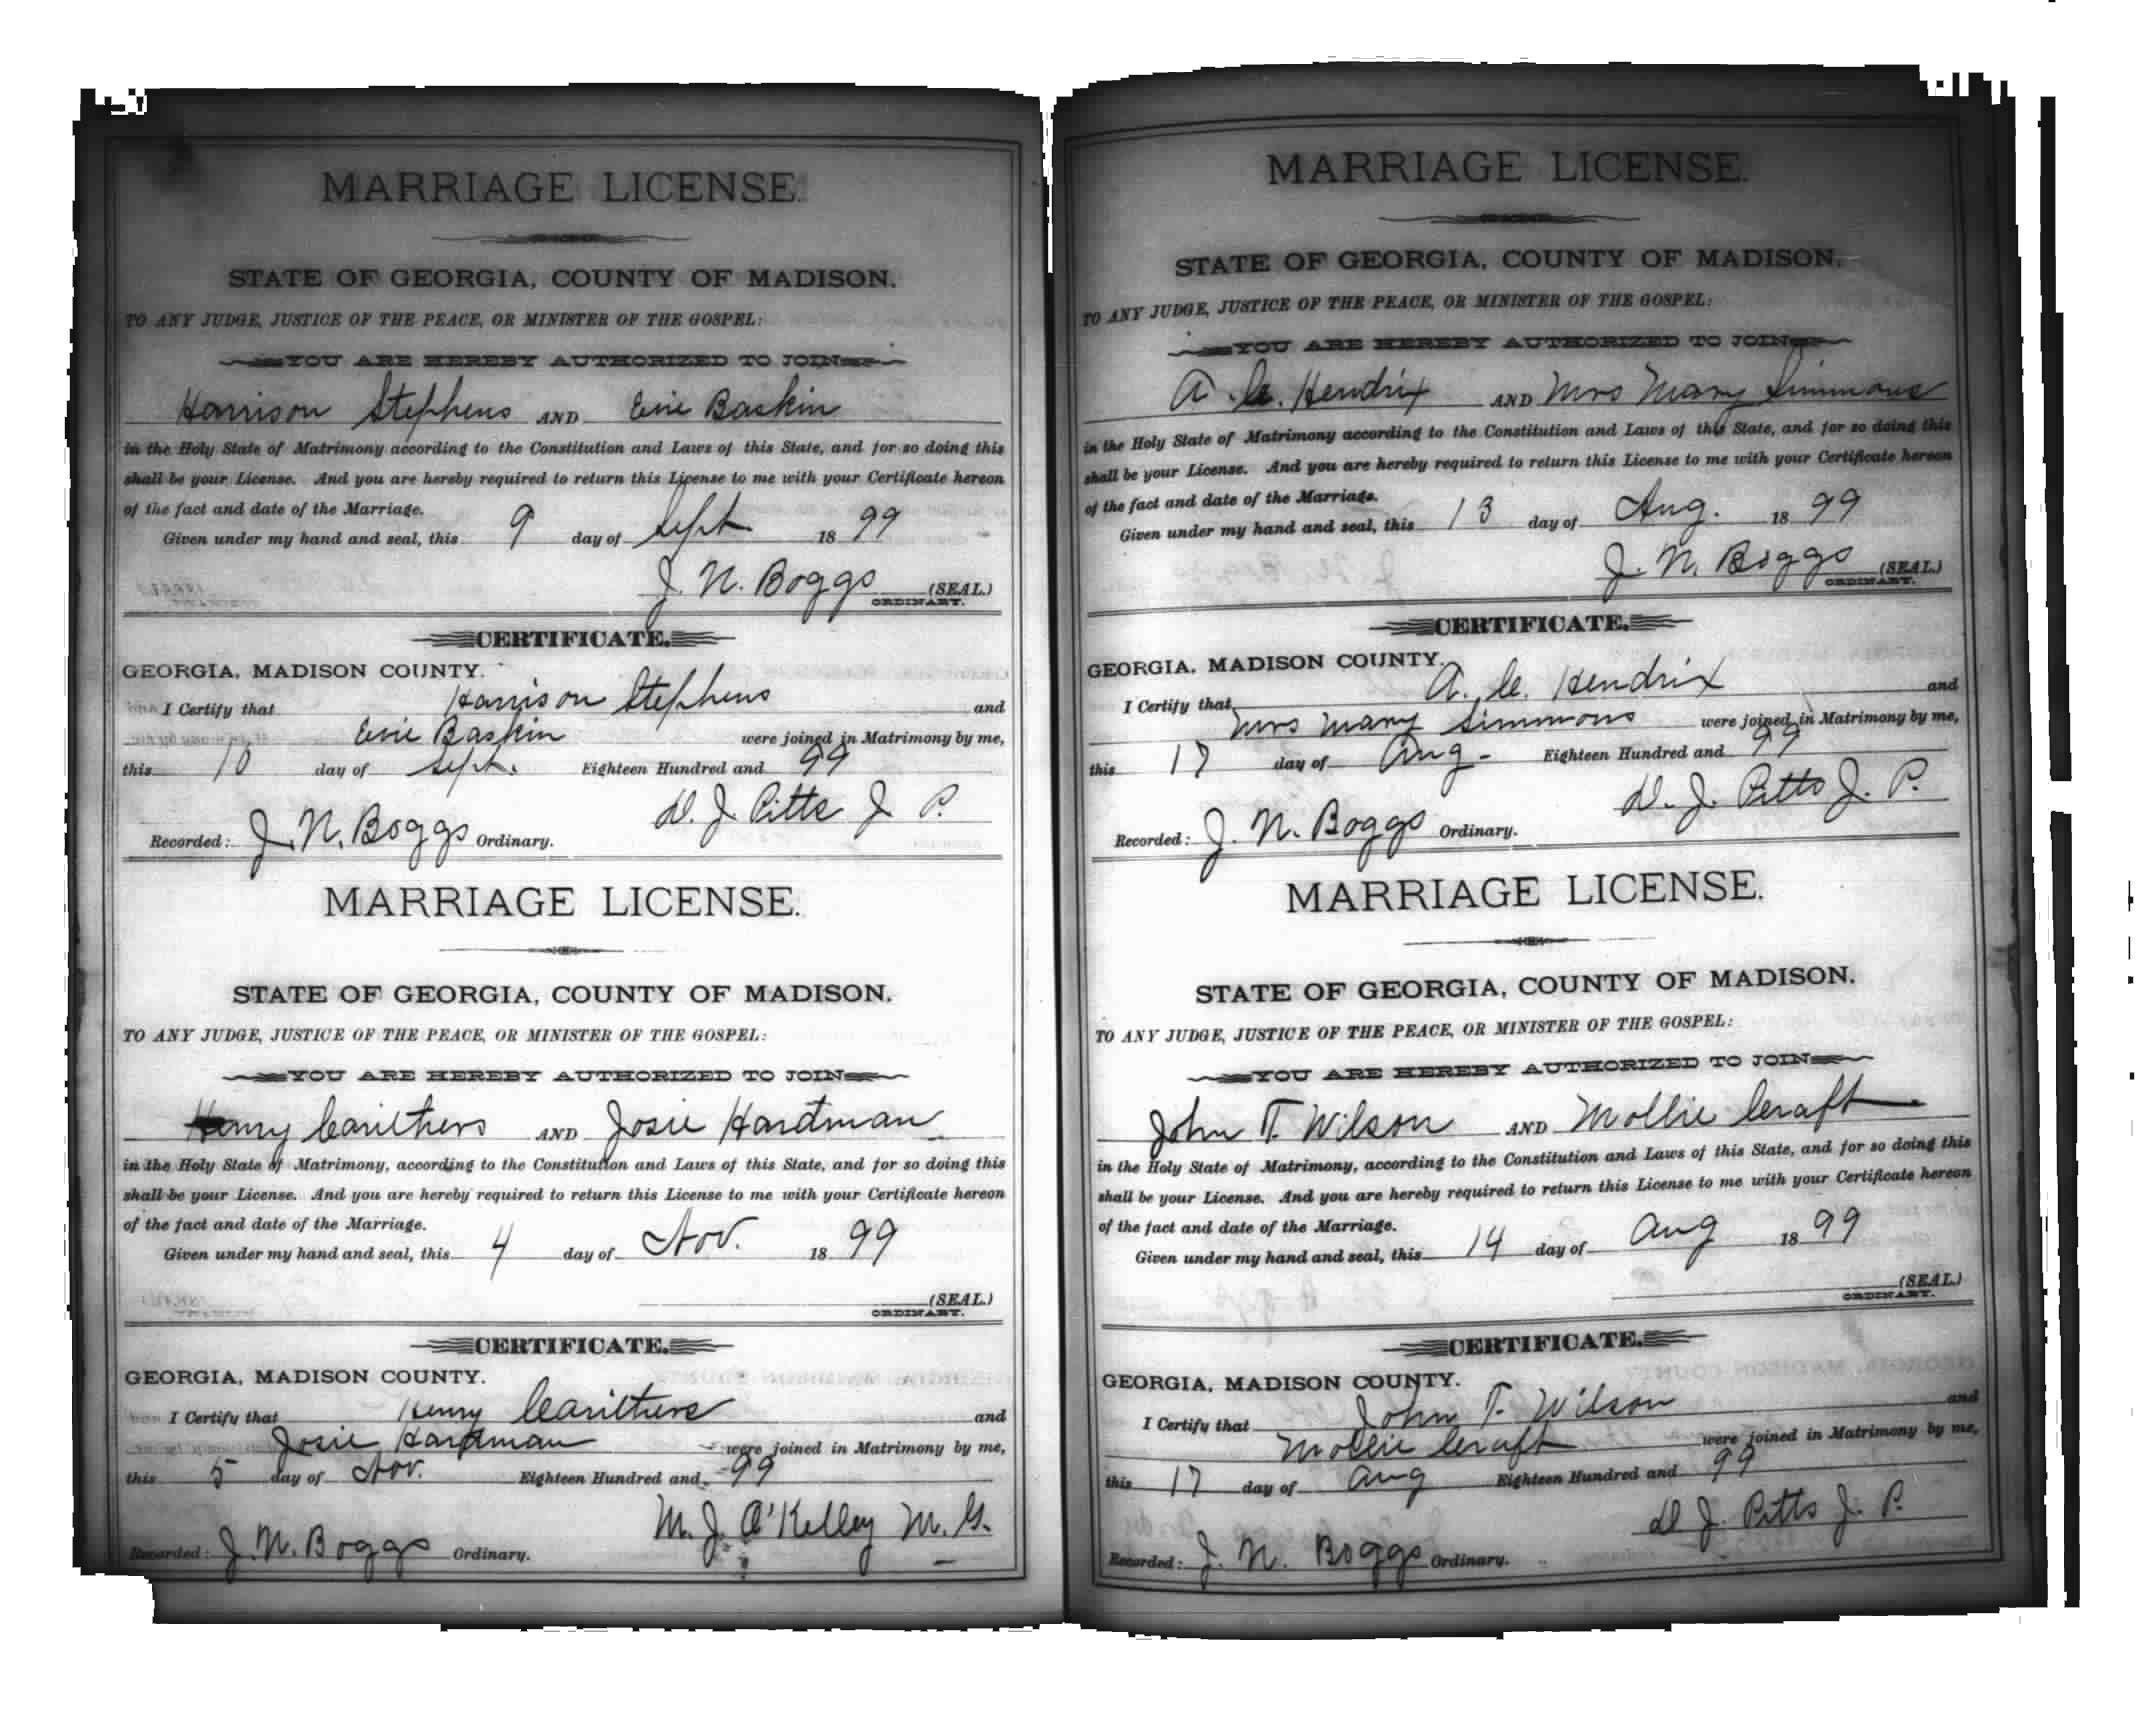 MARRIAGE LICENSE.
STATE OF GEORGIA, COUNTY OF MADISON.
TO ANY JUDGE, JUSTICE OF THE PEACE, OR MINISTER OF THE GOSPEL:
YOU ARE HEREBY AUTHORIZED TO JOIN
Harrison Stephens AND Evie Baskin
in the Holy State of Matrimony according to the Constitution and Laws of this State, and for so doing this
shall be your License. And you are hereby required to return this License to me with your Certificate hereon
of the fact and date of the Marriage.
Given under my hand and seal, this 9 day of Sept 1899
J. N. Boggs (SEAL.)
ORDINARY.
CERTIFICATE.
GEORGIA, MADISON COUNTY.
I Certify that Harrison Stephens and
Evie Baskin were joined in Matrimony by me,
this 10 day of Sept. Eighteen Hundred and 99
D. J. Pitts J. P.
Recorded: J. N. Boggs Ordinary.
MARRIAGE LICENSE.
STATE OF GEORGIA, COUNTY OF MADISON.
TO ANY JUDGE, JUSTICE OF THE PEACE, OR MINISTER OF THE GOSPEL:
YOU ARE HEREBY AUTHORIZED TO JOIN
Henry Carithers AND Josie Hardman
in the Holy State of Matrimony, according to the Constitution and Laws of this State, and for so doing this
shall be your License. And you are hereby required to return this License to me with your Certificate hereon
of the fact and date of the Marriage.
Given under my hand and seal, this 4 day of Nov. 1899
(SEAL.)
ORDINARY.
CERTIFICATE.
GEORGIA, MADISON COUNTY.
I Certify that Henry Carithers and
Josie Hardman were joined in Matrimony by me,
this 5 day of Nov. Eighteen Hundred and 99
M. J. O'Kelley M. G.
Recorded: J. N. Boggs Ordinary.
MARRIAGE LICENSE.
STATE OF GEORGIA, COUNTY OF MADISON.
TO ANY JUDGE, JUSTICE OF THE PEACE, OR MINISTER OF THE GOSPEL:
YOU ARE HEREBY AUTHORIZED TO JOIN
A. C. Hendrix AND Mrs Mary Simmons
in the Holy State of Matrimony according to the Constitution and Laws of this State, and for so doing this
shall be your License. And you are hereby required to return this License to me with your Certificate hereon
of the fact and date of the Marriage.
Given under my hand and seal, this 13 day of Aug. 1899
J. N. Boggs (SEAL.)
ORDINARY.
CERTIFICATE.
GEORGIA, MADISON COUNTY.
I Certify that A. C. Hendrix and
Mrs Mary Simmons were joined in Matrimony by me,
this 17 day of Aug- Eighteen Hundred and 99
D. J. Pitts J. P.
Recorded: J. N. Boggs Ordinary.
MARRIAGE LICENSE.
STATE OF GEORGIA, COUNTY OF MADISON.
TO ANY JUDGE, JUSTICE OF THE PEACE, OR MINISTER OF THE GOSPEL:
YOU ARE HEREBY AUTHORIZED TO JOIN
John T. Wilson AND Mollie Craft
in the Holy State of Matrimony, according to the Constitution and Laws of this State, and for so doing this
shall be your License. And you are hereby required to return this License to me with your Certificate hereon
of the fact and date of the Marriage.
Given under my hand and seal, this 14 day of Aug 1899
(SEAL.)
ORDINARY.
CERTIFICATE.
GEORGIA, MADISON COUNTY.
I Certify that John T. Wilson and
Mollie Craft were joined in Matrimony by me,
this 17 day of Aug Eighteen Hundred and 99
D J. Pitts J. P.
Recorded: J. N. Boggs Ordinary.